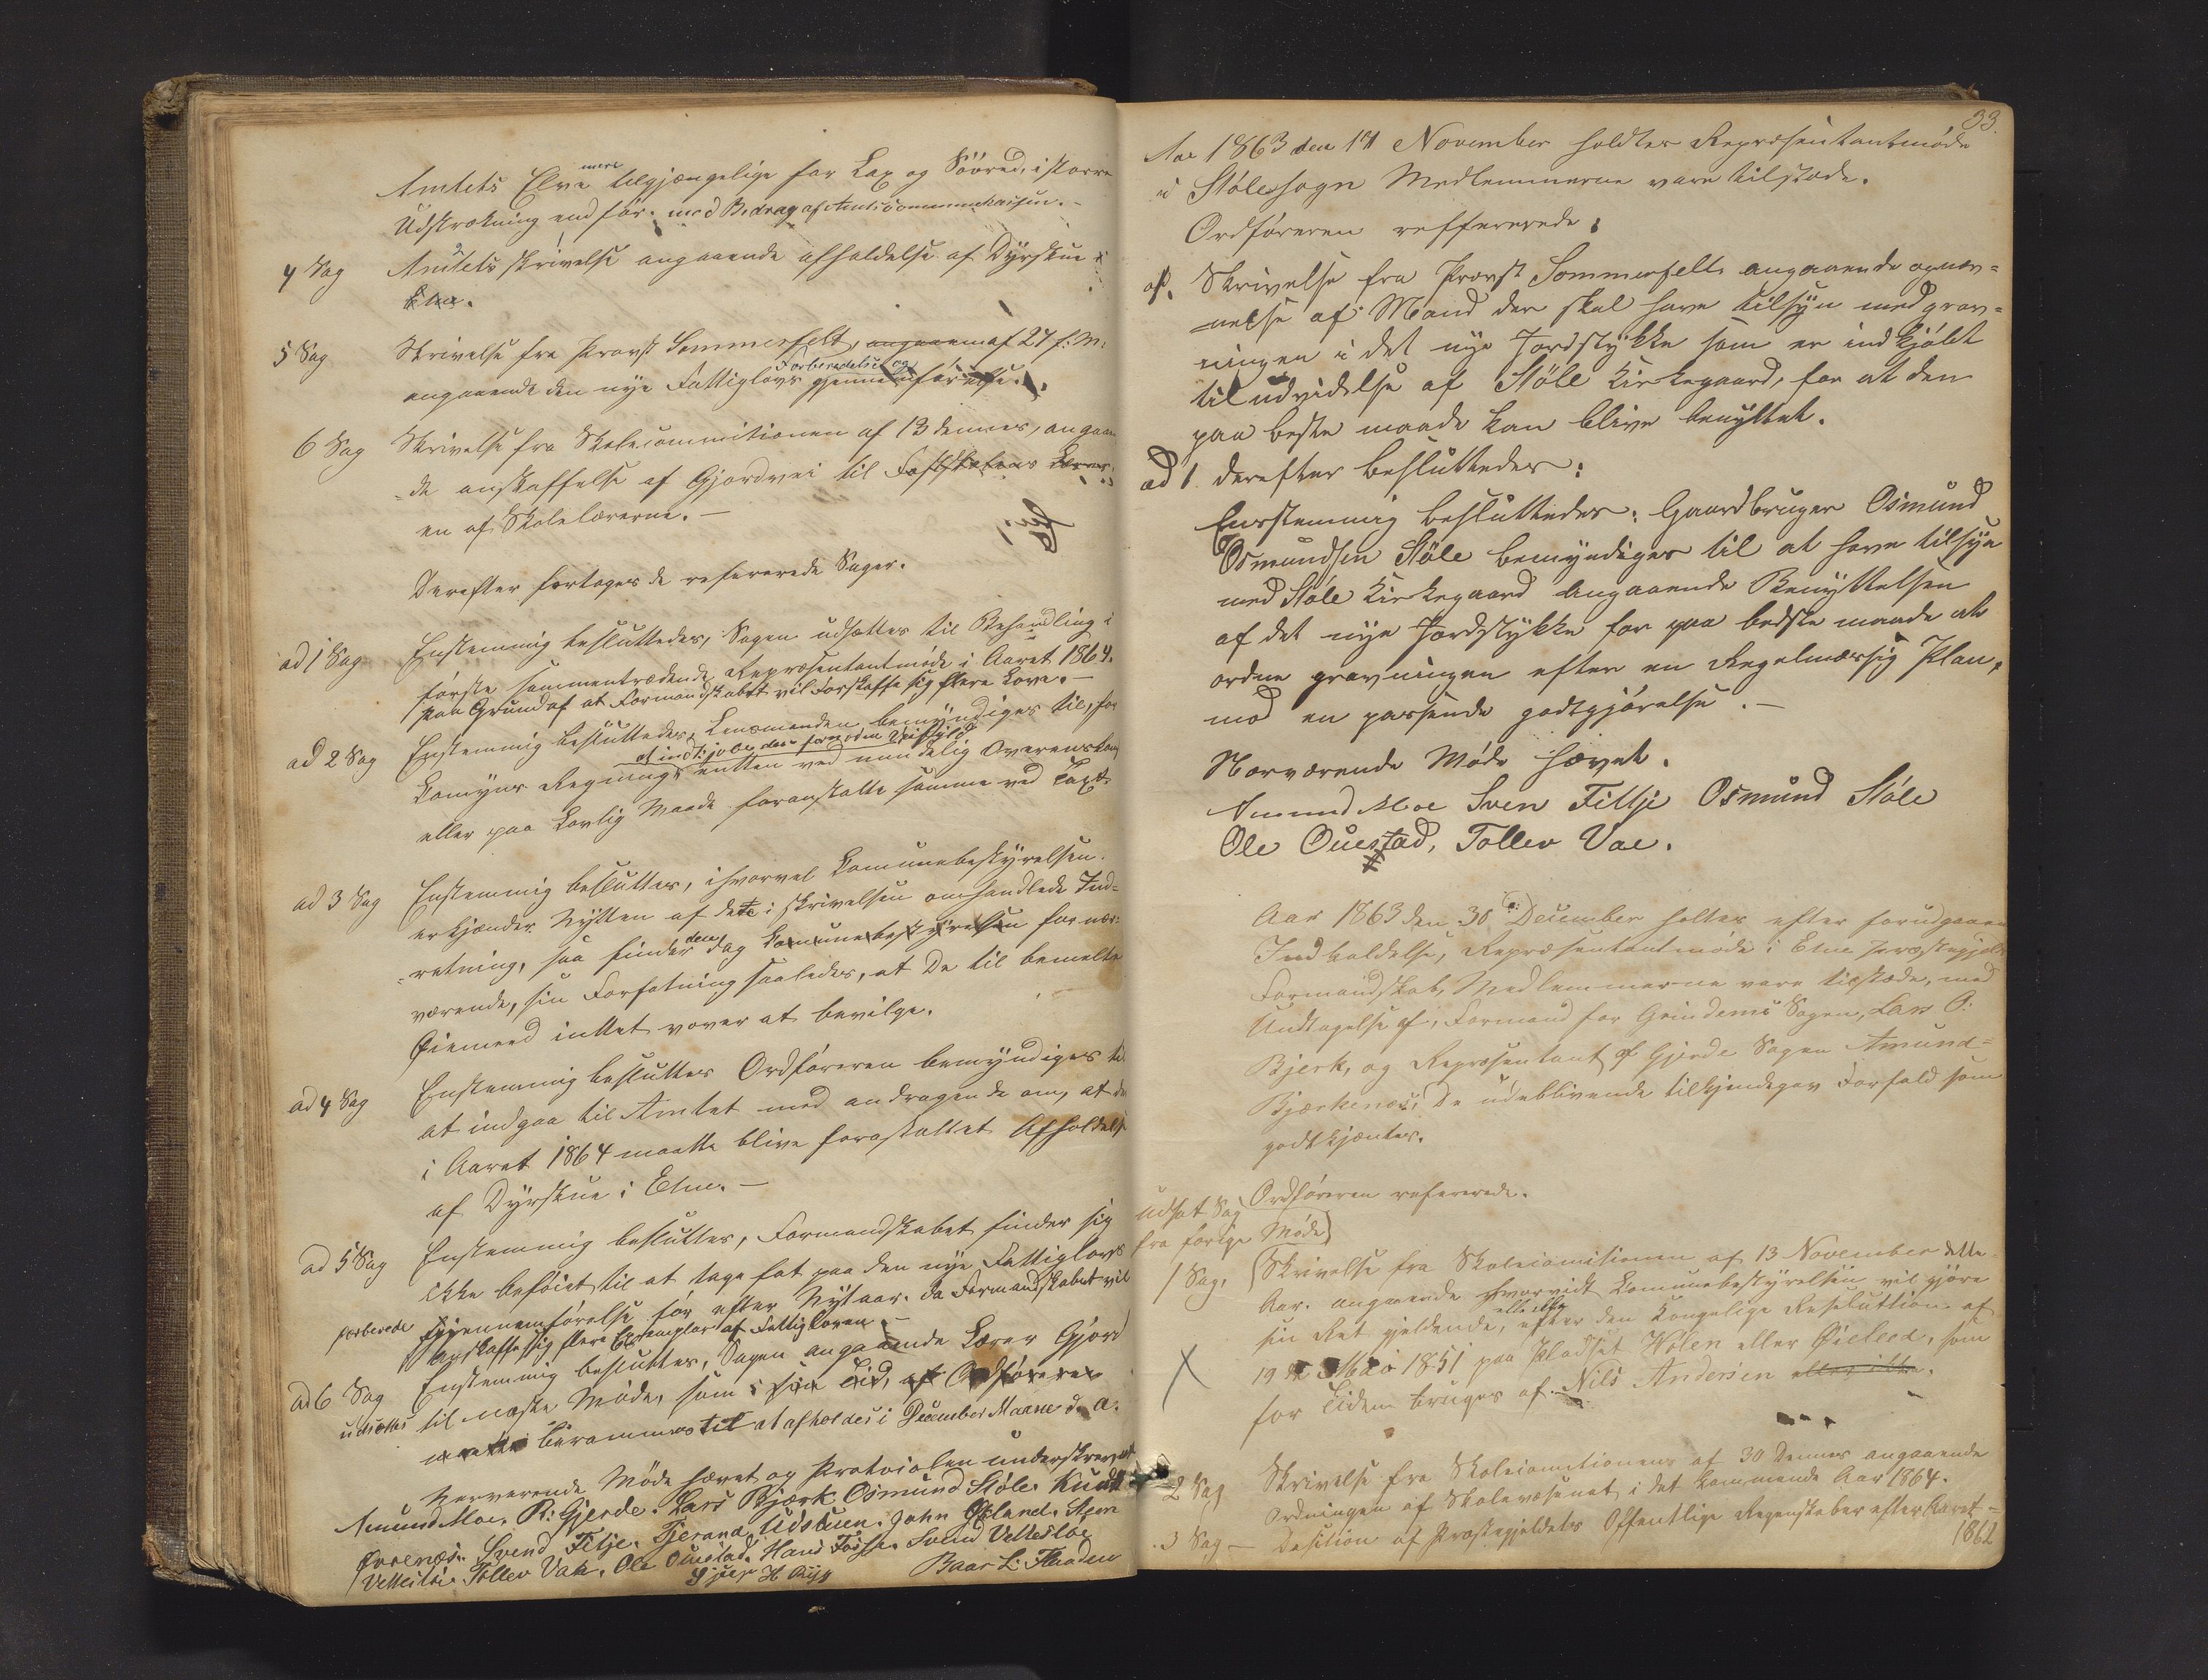 Amtets Elve mere tilgjængelige for Lax og Søöred, i større
Udstrækning end før. med Bidrag af Amtscommunekassen. –
4 Sag Amtets skrivelse angaaende afholdelse af Dyrskue i
Etne.
5 Sag Skrivelse fra Provst Sommerfelt, angaaen af 27 f: M:
angaaende den nye Fattiglovs Forberedelse og gjennemførelse.
6 Sag Skrivelse fra Skolecommitionen af 13 dennes, angaaen
-de anskaffelse af Gjordvei til Fastskolens Lærer
en af Skolelærerne. –
Derefter foretoges de refererede Sager.
ad 1 Sag Enstemmig besluttedes, Sagen udsættes til Behandling i
første sammentrædende Repræsentantmøde i Aaret 1864.
paa Grund af at Formandskabet vil Forskaffe sig flere Love. –
ad 2 Sag Enstemmig besluttedes, Lensmanden bemyndiges til, for
Comyns Regning, entten ved mindelig Overenskomst
eller paa Lovlig Maade foranstalte samme ved Taxt
ad 3 Sag Enstemmig besluttes, ihvorvel Comunebestyrelsen
erkjænder Nytten af dette i skrivelsen omhandlede Ind-
-retning, saa finder den dog Comunebestyrelsen for nær-
værende, sin Forfatning saaledes, at De til bemelte
Øiemeed inttet vover at bevilge.
ad 4 Sag Enstemmig besluttes Ordføreren bemyndiges til
at indgaa til Amtet med andragende om, at der
i Aaret 1864 maatte blive foranstaltet Afholdelse
af Dyrskue i Etne. –
ad 5 Sag Enstemmig besluttes, Formandskabet finder sig
ikke beføiet til at tage fat paa den nye Fattiglovs
forberede Gjennemførelse før efter Nytaar. da Formandskabet vil
anskaffe sig flere Exemplar af Fattigloven –
ad 6 Sag Enstemmig besluttes, Sagen angaaende Lærer Gjord
udsættes til næste Møde, som i sin Tid, af Ordføreren
berammes til at afholdes i December Maaned d. A.
Nærværende Møde hævet og Protocolen underskrevet
Amund Moe. R: Gjerde. Lars Bjærk Osmund Støle. Knudt
Øvrenæs. Svend Fitje. Tjerand Udstuen. John Øfland. Sten
Vettestøi. Tollev Vae. Ole Ouestad. Hans Fosse. Svend Vettestøe
Baar L. Flaaden
33.
Aar 1863 den 14 November holdtes Repræsentantmøde
i Stølesogn Medlemmerne vare tilstede.
Ordføreren reffererede:
Skrivelse fra Provst Sommerfelt angaaende opnæv-
-nelse af Mand der skal have tilsyn med grav-
ningen i det nye Jordstykke som er indkjøbt
til udvidelse af Støle Kirkegaard, for at den
paa beste maade kan blive benyttet.
ad 1 derefter besluttedes:
Eenstemmig besluttedes: Gaardbruger Osmund
Osmundsen Støle bemyndiges til at have tilsyn
med Støle Kirkegaard angaaende Benyttelsen
af det nye Jordstykke for paa bedste maade at
ordne gravningen efter en Regelmæssig Plan,
mod en passende godtgjørelse. –
Nærværende Møde hævet.
Amund Moe Sven Fittje Osmund Støle
Ole Ouestad, Tollev Vae.
Aar 1863 den 30 December holtes efter forudgaaen
Indkaldelse, Repræsentantmøde i Etne Præstegjelds
Formandskab, Medlemmerne vare tilstæde, med
Undtagelse af, Formand for Grindems Sogen, Lars O:
Bjerk, og Repræsentant af Gjerde Sogen Amund-
Bjærkenæs, De udeblivende tilkjendegav Forfald som
godtkjentes.
Ordføreren refererede.
udsat Sag
fra forige Møde
1 Sag. Skrivelse fra Skolecomitionen af 13 November dette
Aar. angaaende hvorvidt Comunebestyrelsen vil gjøre
sin Ret gjeldende, eller ikke, efter den Kongelige Resoluttion af
19 de Mai 1851 paa Pladset Holen eller Øieleed, som
for Tiden bruges af Nils Andersen eller ikke.
2 Sag Skrivelse fra Skolecomitionens af 30 Dennes angaaende
Ordningen af Skolevæsenet i det kommende Aar 1864.
3 Sag – Desition af Præstegjeldets Offentlige Regenskaber efter Aaret –
1862